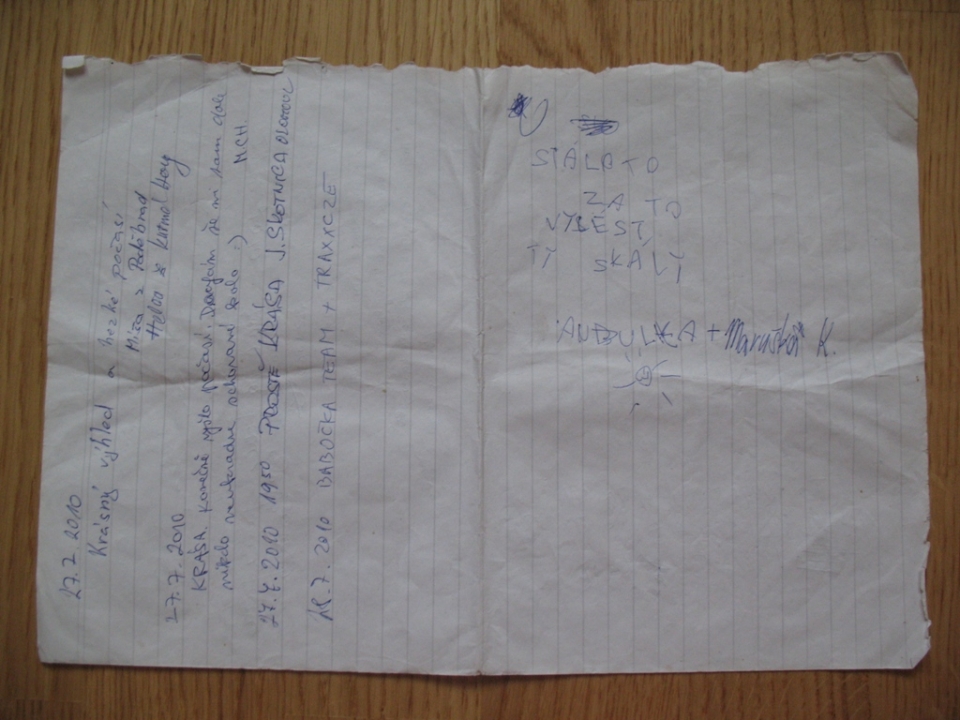 27.7.2010
Krásný výhled a hezké počasí
Míša z Poděbrad
Helča z
27.7.2010
KRÁSA. Konečně vyšlo počasí. Doufám že mi tam dole
nikdo neukradne schované kolo :)
M.CH.
27.7.2010 1930 PROSTĚ KRÁSA J.SKOTNICA OLOMOUC
28.7.2010 BABOČKA TEAM + TRAXXCZE
STÁLO TO
ZA TO
VYLÉST
TY SKÁLY
ANDULKA + Maruška K.